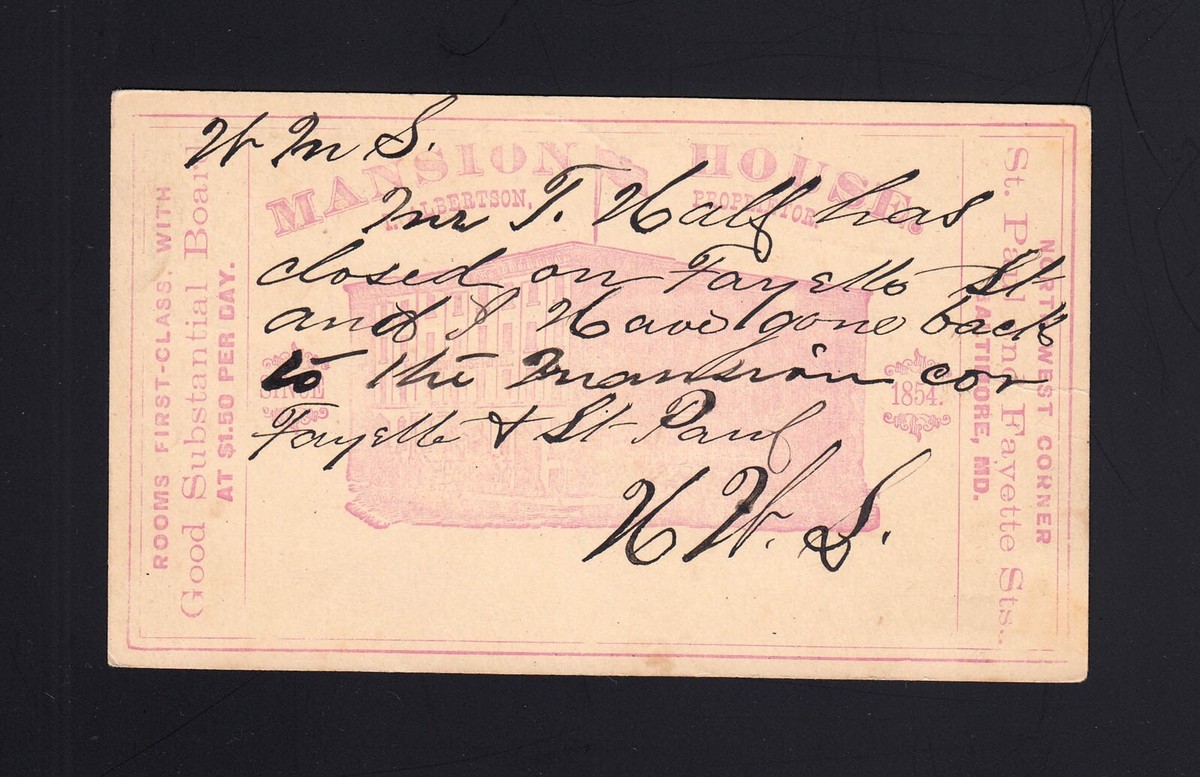 W M S.
MANSION HOUSE,
ALBERTSON, PROPRIETOR.
Mr T. Hall has
closed on Fayette St
and I Have gone back
to the Mansion cor
Fayette & St Paul
H W. S.
SINCE 1854.
ROOMS FIRST-CLASS, WITH
Good Substantial Board
AT $1.50 PER DAY.
NORTHWEST CORNER
St. Paul and Fayette Sts.,
BALTIMORE, MD.